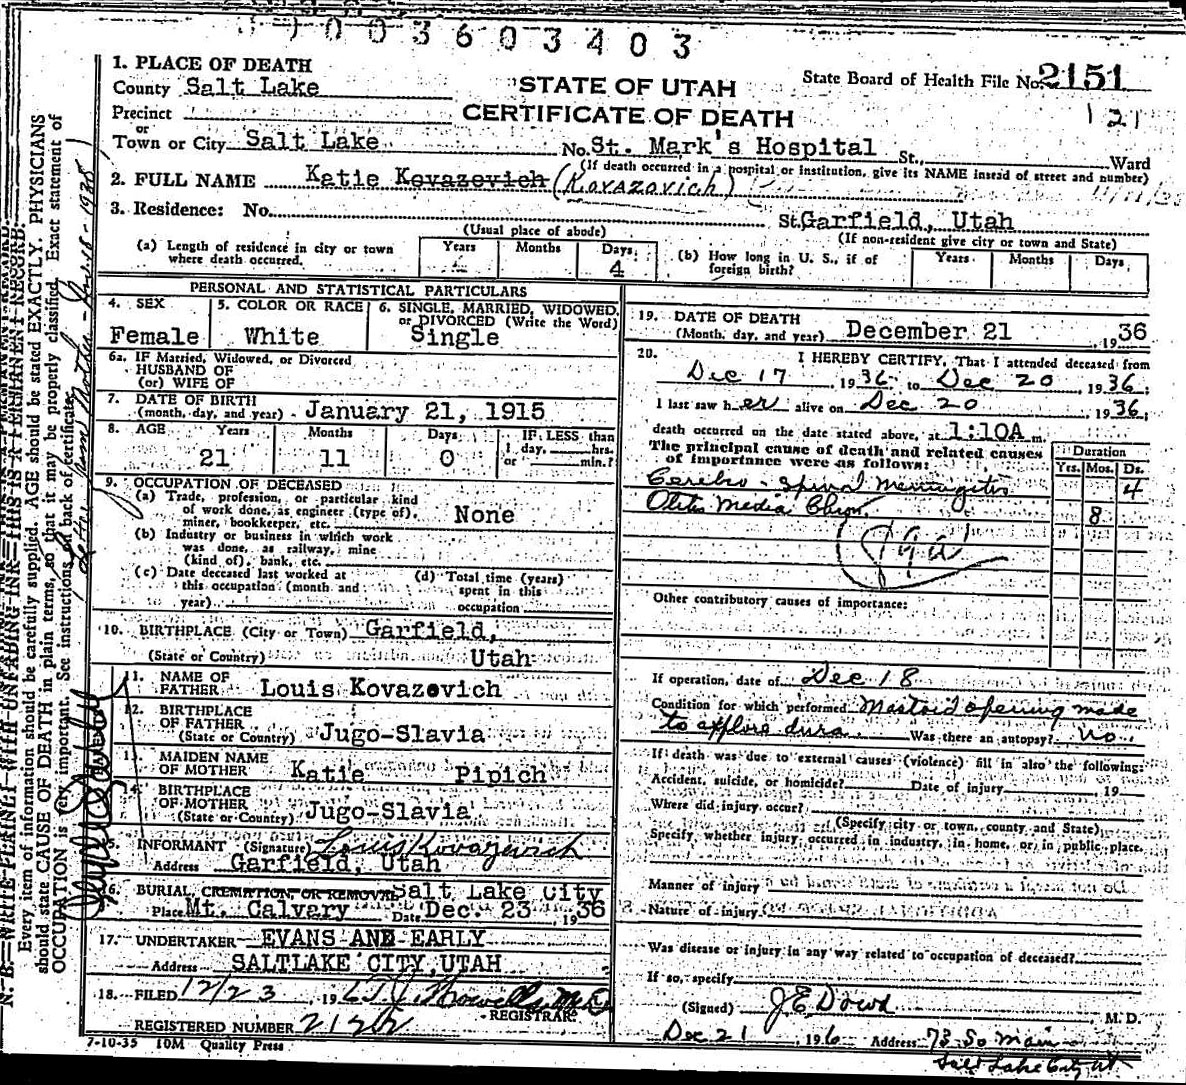 7003603403
1. PLACE OF DEATH
County Salt Lake
STATE OF UTAH
State Board of Health File No. 2151
Precinct
CERTIFICATE OF DEATH
121
or
Town or City Salt Lake No. St. Mark's Hospital St., Ward
(If death occurred in a hospital or institution, give its NAME instead of street and number)
2. FULL NAME Katie Kovazevich (Kovazovich)
3. Residence: No. St. Garfield, Utah
(Usual place of abode) (If non-resident give city or town and State)
(a) Length of residence in city or town where death occurred. Years Months Days 4
(b) How long in U. S., if of foreign birth? Years Months Days
PERSONAL AND STATISTICAL PARTICULARS
4. SEX Female
5. COLOR OR RACE White
6. SINGLE, MARRIED, WIDOWED, or DIVORCED (Write the Word) Single
6a. IF Married, Widowed, or Divorced
HUSBAND OF
(or) WIFE OF
7. DATE OF BIRTH
(month, day, and year) January 21, 1915
8. AGE Years Months Days IF LESS than
21 11 0 1 day, hrs.
or min.?
9. OCCUPATION OF DECEASED
(a) Trade, profession, or particular kind
of work done, as engineer (type of),
miner, bookkeeper, etc. None
(b) Industry or business in which work
was done, as railway, mine
(kind of), bank, etc.
(c) Date deceased last worked at
this occupation (month and
year)
(d) Total time (years)
spent in this
occupation
10. BIRTHPLACE (City or Town) Garfield,
(State or Country) Utah
11. NAME OF
FATHER Louis Kovazevich
12. BIRTHPLACE
OF FATHER
(State or Country) Jugo-Slavia
13. MAIDEN NAME
OF MOTHER Katie Pipich
14. BIRTHPLACE
OF MOTHER
(State or Country) Jugo-Slavia
15. INFORMANT (Signature) Louis Kovazevich
Address Garfield, Utah
16. BURIAL, CREMATION, OR REMOVAL Salt Lake City
Place Mt. Calvary Date Dec. 23 1936
17. UNDERTAKER EVANS AND EARLY
Address SALTLAKE CITY, UTAH
18. FILED 12/23, 19
REGISTRAR.
REGISTERED NUMBER
7-10-35 10M Quality Press
19. DATE OF DEATH
(Month, day, and year) December 21 1936
20. I HEREBY CERTIFY, That I attended deceased from
Dec 17, 1936, to Dec 20, 1936;
I last saw her alive on Dec 20, 1936;
death occurred on the date stated above, at 1:10A m.
The principal cause of death and related causes
of importance were as follows:
Duration
Yrs. Mos. Ds.
Cerebro-spinal Meningitis 4
Otitis Media Chron. 8
Other contributory causes of importance:
If operation, date of Dec 18
Condition for which performed Mastoid opening made
to explore dura Was there an autopsy? no
If death was due to external causes (violence) fill in also the following:
Accident, suicide, or homicide? Date of injury 19
Where did injury occur?
(Specify city or town, county and State)
Specify whether injury occurred in industry, in home, or in public place.
Manner of injury
Nature of injury
Was disease or injury in any way related to occupation of deceased?
If so, specify
(Signed) J E Dowd M. D.
Dec 21 1936 Address 73 So Main
Salt Lake City Ut
N. B.—WRITE PLAINLY WITH UNFADING INK—THIS IS A PERMANENT RECORD.
Every item of information should be carefully supplied. AGE should be stated EXACTLY. PHYSICIANS
should state CAUSE OF DEATH in plain terms, so that it may be properly classified. Exact statement of
OCCUPATION is very important. See instructions on back of certificate.